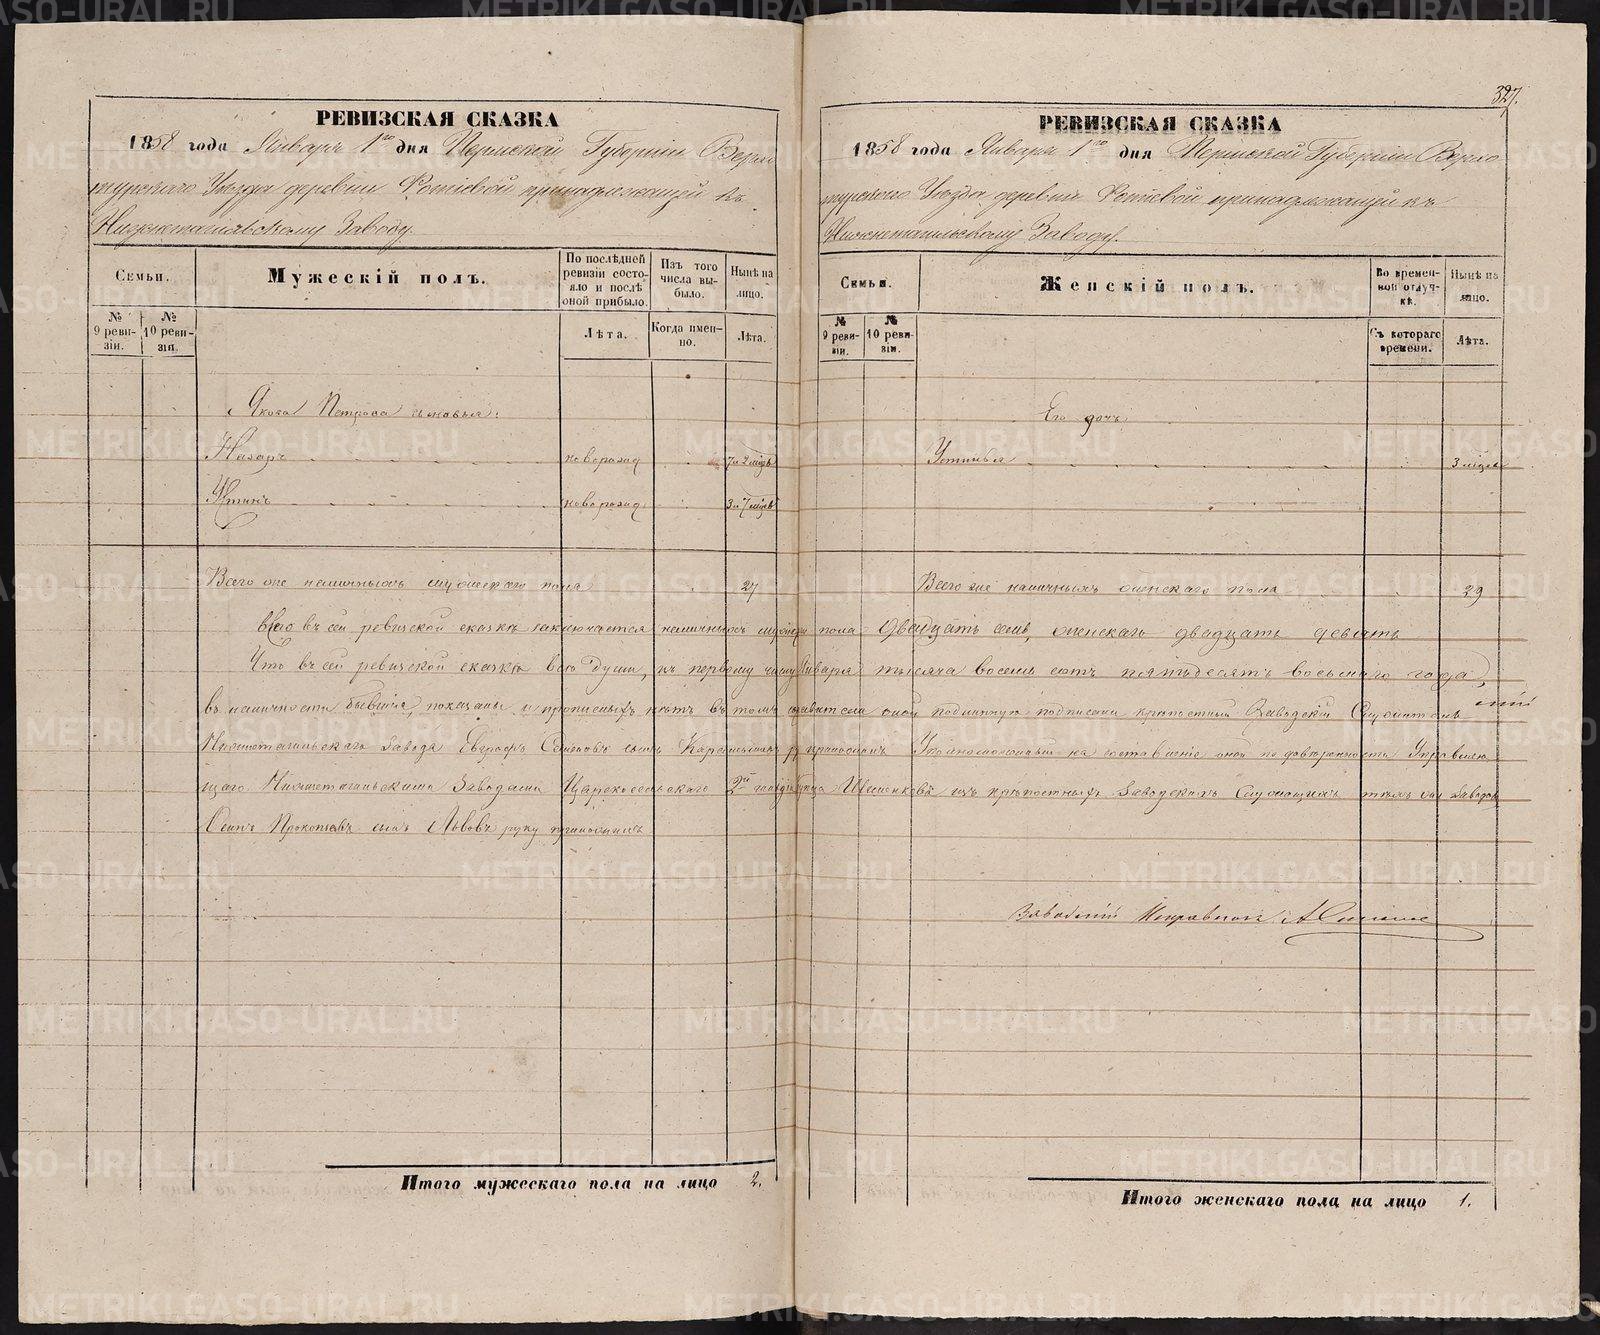 327.
РЕВИЗСКАЯ СКАЗКА
1858 года Января 1го дня Пермской Губерніи Верхо
турскаго Уѣзда деревни принадлежащей къ
Нижнетагильскому Заводу.
Семьи.
Мужескій полъ.
По послѣдней ревизіи состояло и послѣ оной прибыло.
Изъ того числа выбыло.
Нынѣ на лицо.
№ 9 ревизіи.
№ 10 ревизіи.
Лѣта.
Когда именно.
Лѣта.
Якова Петрова сыновья:
Назаръ новорожд 7 и 2 мцъ
новорожд 3 и 7 мцъ
Всего же наличныхъ мужескаго пола 27
Итого мужескаго пола на лицо 2.
РЕВИЗСКАЯ СКАЗКА
1858 года Января 1го дня Пермской Губерніи Верхо
турскаго Уѣзда деревни принадлежащей къ
Нижнетагильскому Заводу.
Семьи.
Женскій полъ.
Во временной отлучкѣ.
Нынѣ на лицо.
№ 9 ревизіи.
№ 10 ревизіи.
Съ котораго времени.
Лѣта.
Его дочь
Устинья 3 мцъ
Всего же наличныхъ женскаго пола 29
Всего въ сей ревизской сказкѣ заключается наличныхъ мужеск пола двадцать семь, женскаго двадцать девять
Что въ сей ревизской сказкѣ всѣ души, къ первому числу Января тысяча восемь сотъ пятьдесятъ восьмаго года,
въ наличности бывшія, показаны и прописныхъ нѣтъ въ томъ оной подлинную подписали крѣпостный Заводскій Служитель
Нижнетагильскаго Завода Евграфъ сынъ руку приложилъ Уполномоченный на составленіе оной по довѣренности Управляю
щаго Нижнетагильскими Заводами Царскосельскаго 2й гильдіи купца изъ крѣпостныхъ Заводскихъ Служащихъ тѣхъ же Заводовъ
Осипъ Прокопьевъ сынъ Львовъ руку приложилъ
Заводскій Исправникъ
Итого женскаго пола на лицо 1.
METRIKI.GASO-URAL.RU